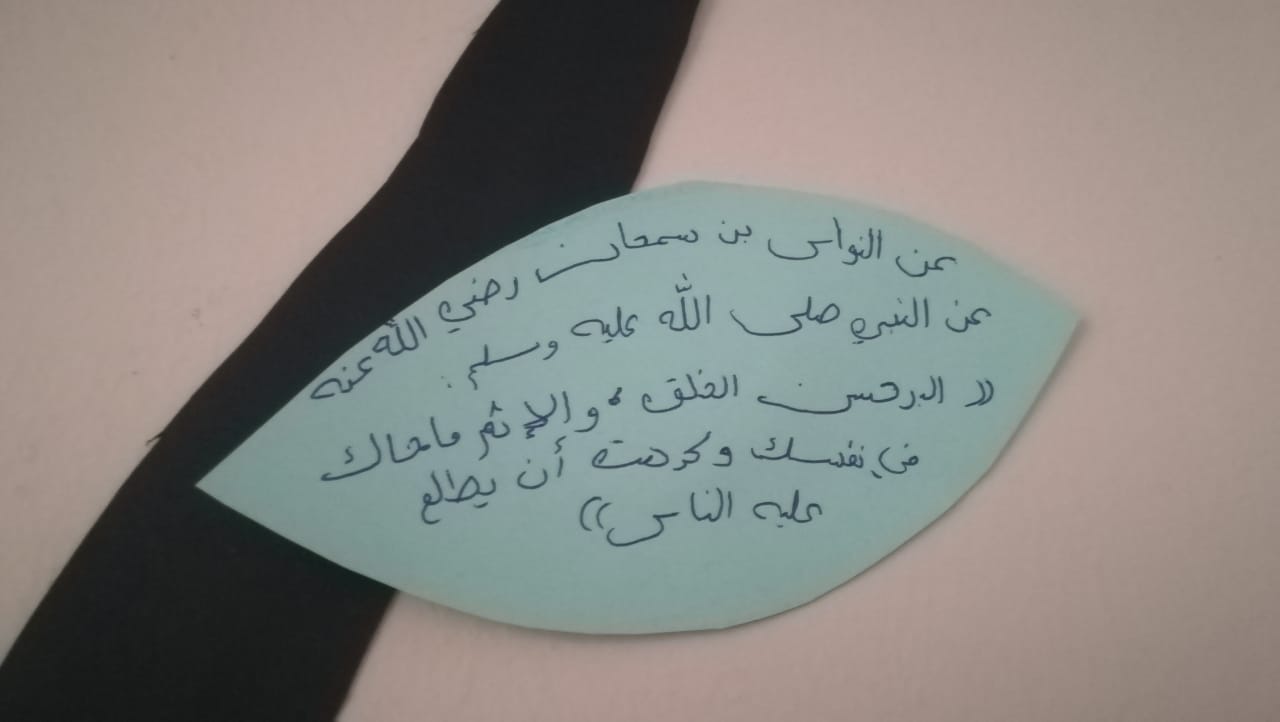 عن النواس بن سمعان رضي الله عنه
عن النبي صلى الله عليه وسلم :
(( البر حسن الخلق ، والإثم ما حاك
في نفسك وكرهت أن يطالع
عليه الناس ))